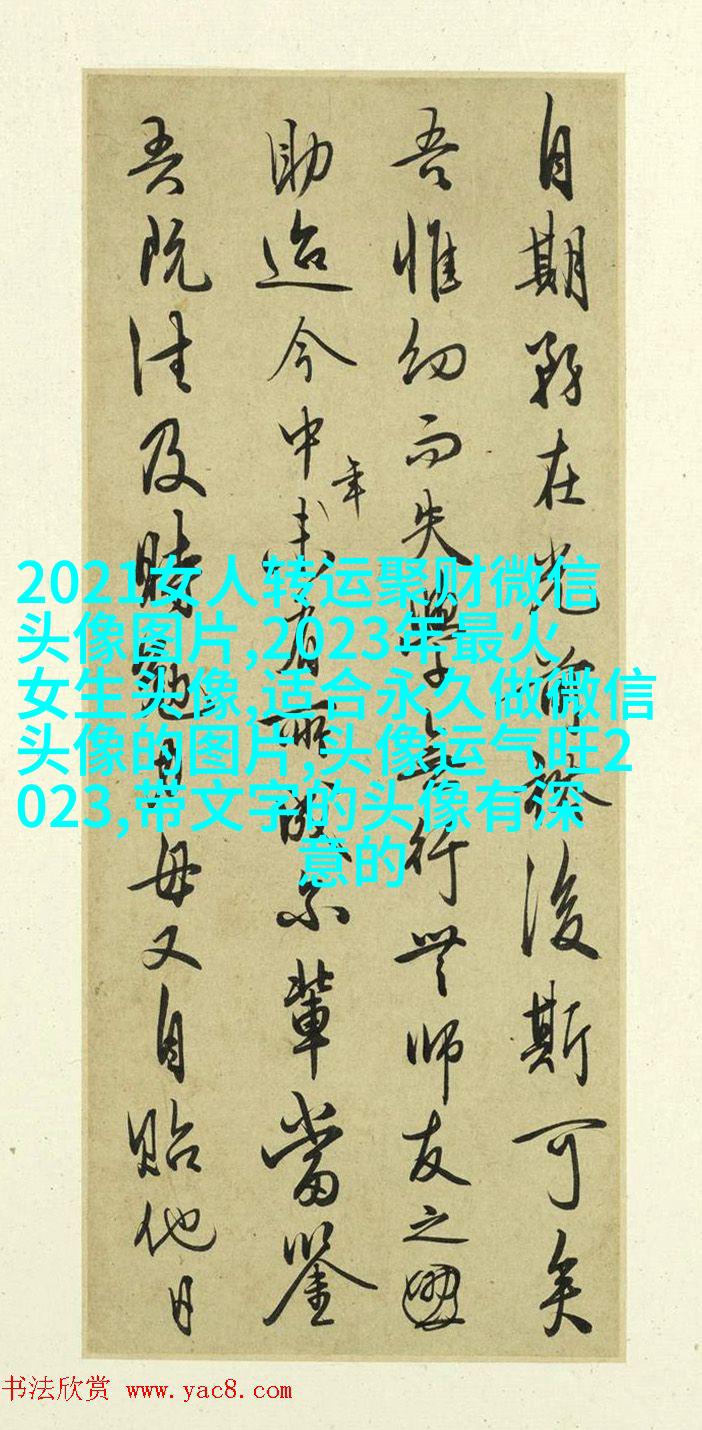 自期務在光前裕後斯可矣
吾惟幼而失學無行無師友之
助迨今中年未有所成尔輩當鑒
吾既往及時勉毋又自貽他日
2021女人转运聚财微信
头像图片,2023年最火
女生头像,适合永久做微信
头像的图片,头像运气旺2
023,带文字的头像有深
意的
书法欣赏 www.yac8.com